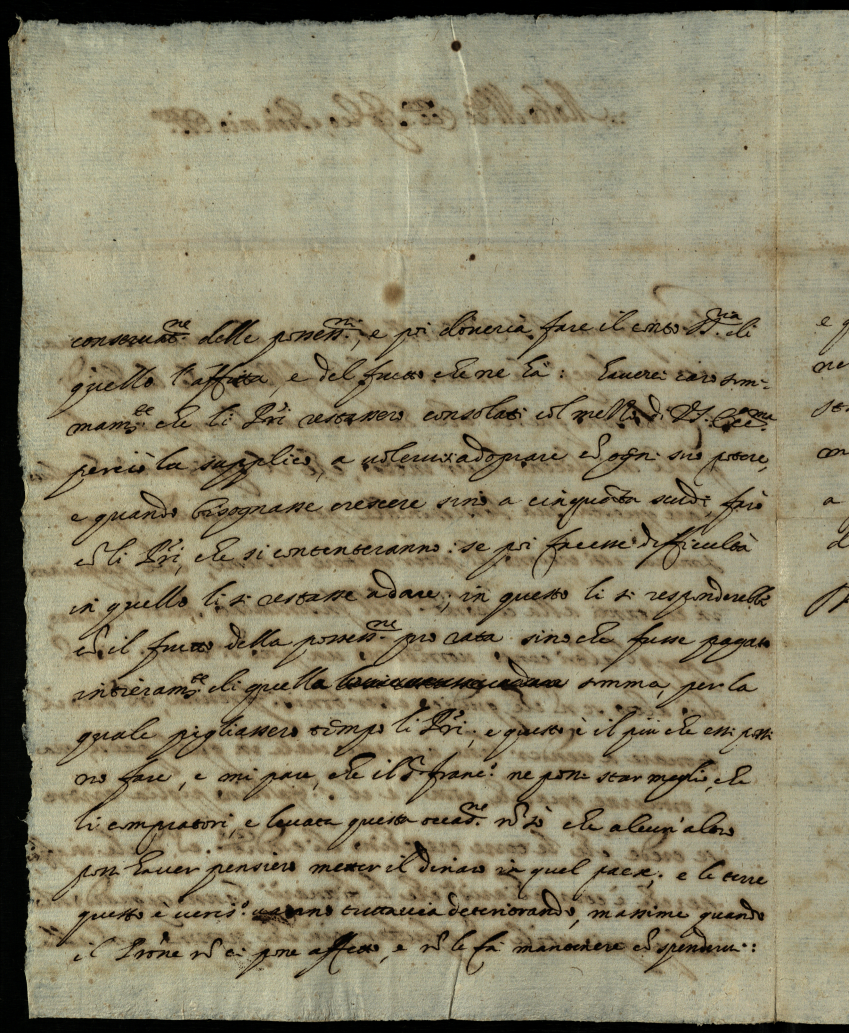 conseruat.ne delle possess.ni, e poi doueria fare il conto V.S. di
quello l'affitta, e del frutto che ne hà: hauerei caro som-
mam.te che li P̃ri restassero consolati col mezzo di V.S. Ecc.ma
perciò la supplico, a uolerui adoprare cõ ogni suo potere,
e quando bisognasse crescere sino a cinquãta scudi, farò
cõ li P̃ri, che si contenteranno: se poi facesse difficultà
in quello li si restasse a dare, in questo li si responderebbe
cõ il frutto della possess.ne pro rata sino che fusse pagato
intieram.te di quella somma, per la
quale pigliassero tẽpo li P̃ri, e questo è il più che essi posso
no fare, e mi pare, che il S.r Franc.o ne possi star meglio, che
li compratori, e leuata questa occas.ne nõ sò che alcun'altro
possi hauer pensiero metter il denaro in quel paese, e le terre
questo è ueriss.o uanno tuttauia deteriorando, massime quando
il P̃rone nõ ci pone affetto, e nõ le fà mantenere cõ spenderui:
e q
ne
st
m
a
d